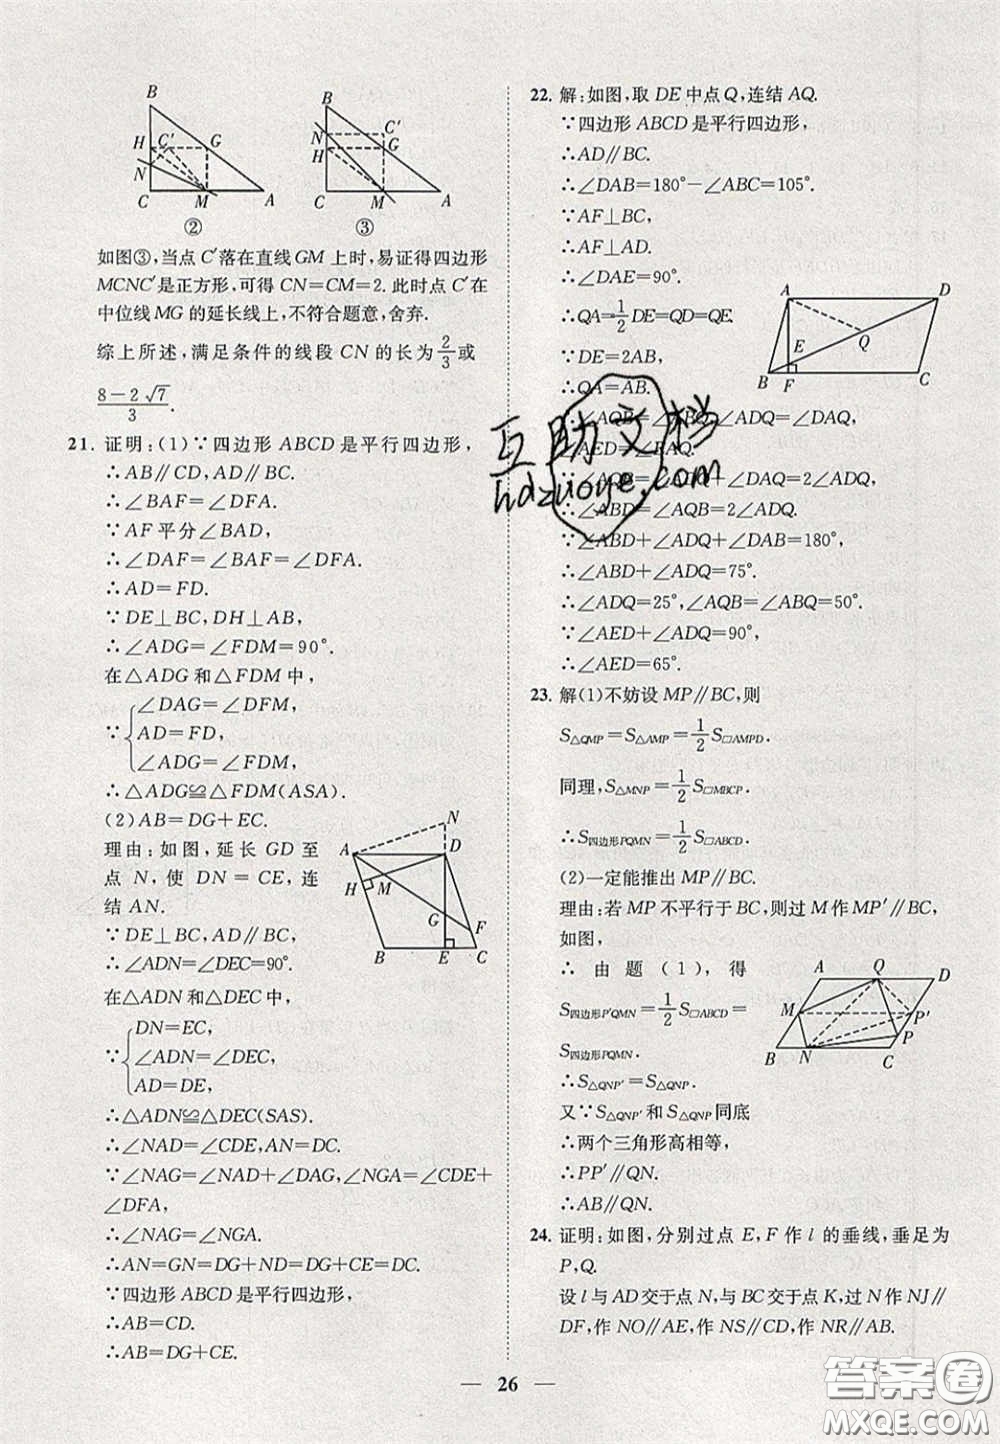 B
H
C'
G
N
C
M
A
②
B
N
C'
H
G
C
M
A
③
如图③,当点 C′落在直线GM 上时,易证得四边形
MCNC′是正方形,可得 CN=CM=2. 此时点 C′在
中位线 MG 的延长线上,不符合题意,舍弃.
综上所述,满足条件的线段 CN 的长为 2/3 或
(8-2√7)/3.
21. 证明:(1)∵四边形 ABCD是平行四边形,
∴AB∥CD,AD∥BC.
∴∠BAF=∠DFA.
∵AF 平分∠BAD,
∴∠DAF=∠BAF=∠DFA.
∴AD=FD.
∵DE⊥BC,DH⊥AB,
∴∠ADG=∠FDM=90°.
在△ADG 和△FDM 中,
∠DAG=∠DFM,
∵ AD=FD,
∠ADG=∠FDM,
∴△ADG≌△FDM(ASA).
(2)AB=DG+EC.
理由:如图,延长 GD 至
点 N,使 DN=CE,连
结 AN.
∵DE⊥BC,AD∥BC,
∴∠ADN=∠DEC=90°.
在△ADN和△DEC中,
DN=EC,
∵ ∠ADN=∠DEC,
AD=DE,
∴△ADN≌△DEC(SAS).
∴∠NAD=∠CDE,AN=DC.
∵∠NAG=∠NAD+∠DAG,∠NGA=∠CDE+
∠DFA,
∴∠NAG=∠NGA.
∴AN=GN=DG+ND=DG+EC.
∵四边形 ABCD是平行四边形,
∴AB=CD.
∴AB=DG+CE.
N
A
D
H
M
G
F
B
E
C
22. 解:如图,取 DE 中点 Q,连结 AQ.
∵四边形 ABCD是平行四边形,
∴AD∥BC.
∴∠DAB=180°-∠ABC=105°.
∵AF⊥BC,
∴AF⊥AD.
∴∠DAE=90°.
∴QA=1/2 DE=QD=QE.
∵DE=2AB,
∴QA=AB.
∠ADQ=∠DAQ,
∠AED=
∠DAQ=2∠ADQ,
∴∠ABD=∠AQB=2∠ADQ.
∵∠ABD+∠ADQ+∠DAB=180°,
∴∠ABD+∠ADQ=75°.
∴∠ADQ=25°,∠AQB=∠ABQ=50°.
∵∠AED+∠ADQ=90°,
∴∠AED=65°.
A
D
E
Q
B
F
C
23. 解(1)不妨设 MP∥BC,则
S△QMP=S△AMP=1/2 S□AMPD.
同理,S△MNP=1/2 S□MBCP.
∴S四边形PQMN=1/2 S□ABCD.
(2)一定能推出 MP∥BC.
理由:若 MP 不平行于 BC,则过 M 作 MP′∥BC,
如图,
∴ 由 题 (1), 得
S四边形P′QMN=1/2 S□ABCD=
S四边形PQMN.
∴S△QNP′=S△QNP.
又∵S△QNP′和 S△QNP同底
∴两个三角形高相等,
∴PP′∥QN.
∴AB∥QN.
A
Q
D
M
P'
P
B
N
C
24. 证明:如图,分别过点 E,F 作 l 的垂线,垂足为
P,Q.
设 l 与 AD交于点 N,与 BC 交于点 K,过 N 作 NJ∥
DF,作 NO∥AE,作 NS∥CD,作 NR∥AB.
互助文档
hdzuoye.com
— 26 —
答案圈
MXQE.COM